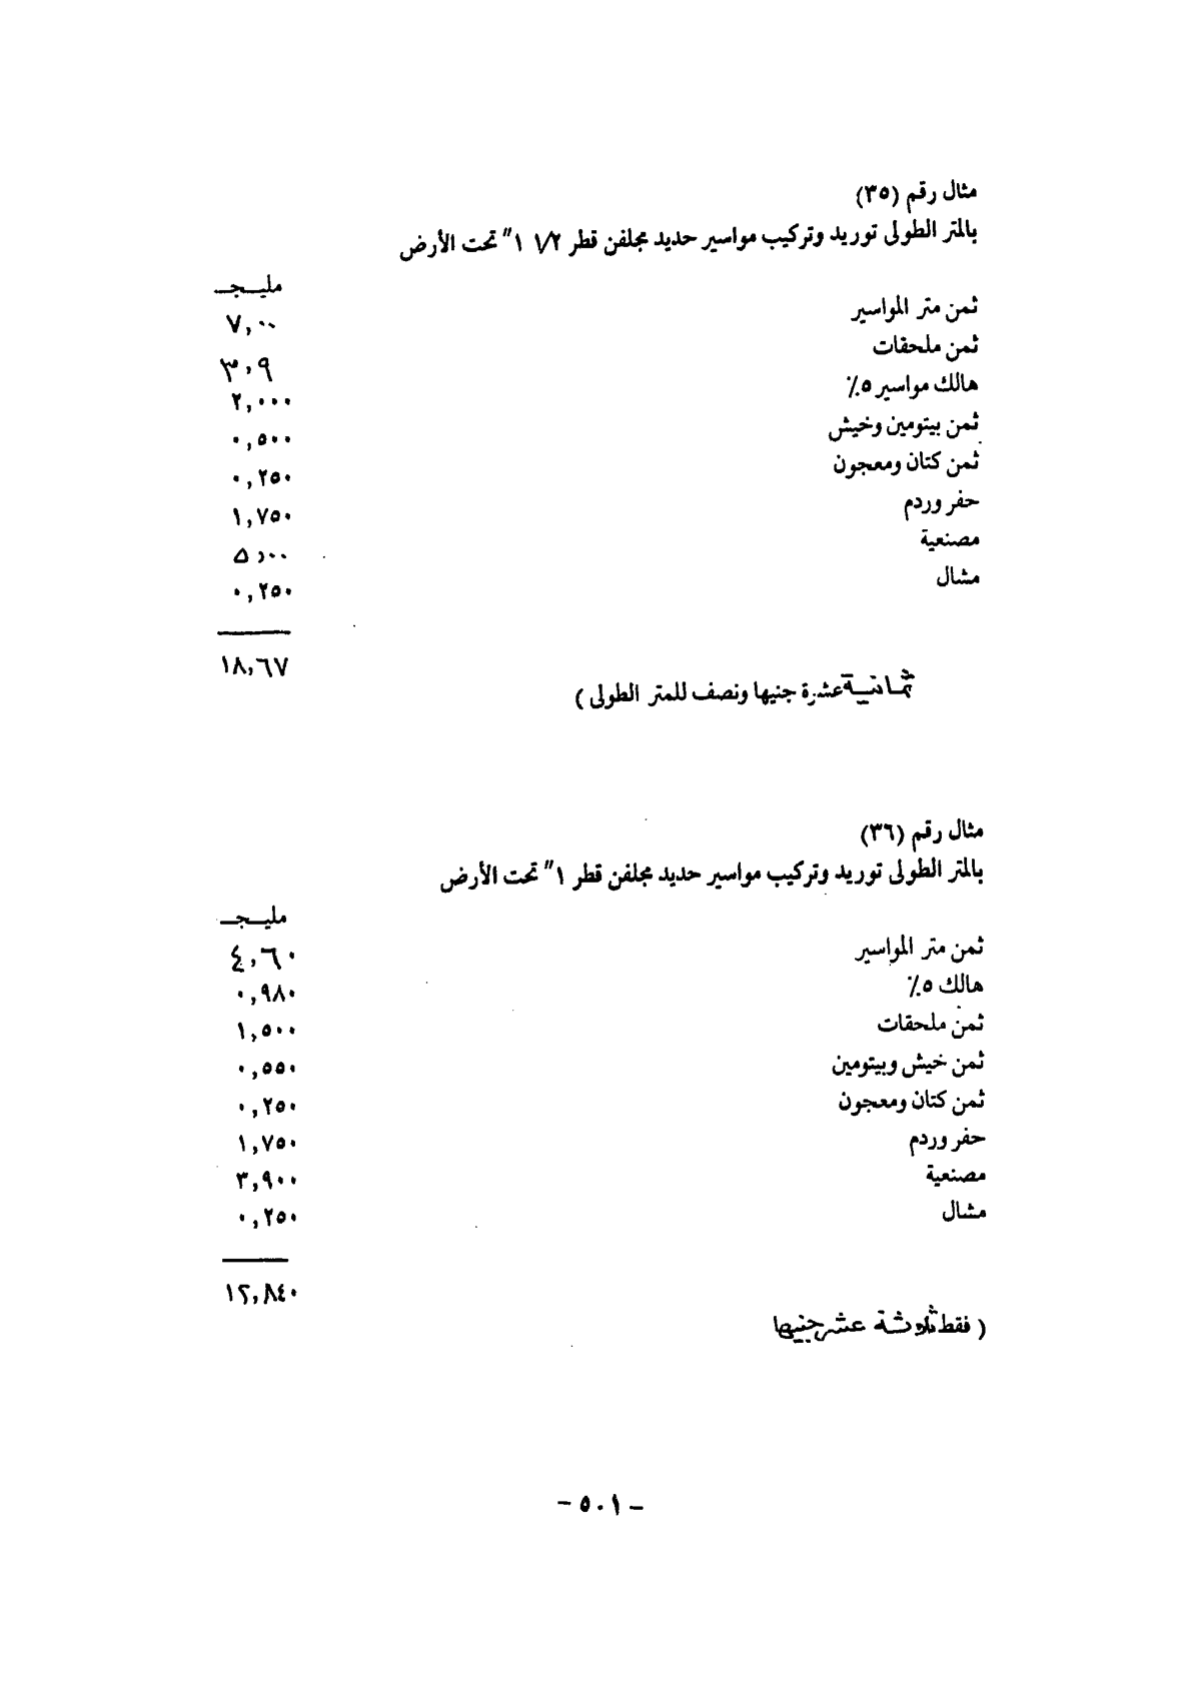 مثال رقم (٣٥)
بالمتر الطولى توريد وتركيب مواسير حديد مجلفن قطر ١/٢ ١" تحت الأرض
مليـجـ
ثمن متر المواسير ٧,٠٠
ثمن ملحقات ٣,٠٩
هالك مواسير ٥٪ ٢,٠٠٠
ثمن بيتومين وخيش ٠,٥٠٠
ثمن كتان ومعجون ٠,٢٥٠
حفر وردم ١,٧٥٠
مصنعية ٥,٠٠
مشال ٠,٢٥٠
١٨,٦٧
ثمانية عشرة جنيها ونصف للمتر الطولى )
مثال رقم (٣٦)
بالمتر الطولى توريد وتركيب مواسير حديد مجلفن قطر ١" تحت الأرض
مليـجـ
ثمن متر المواسير ٤,٦٠
هالك ٥٪ ٠,٩٨٠
ثمن ملحقات ١,٥٠٠
ثمن خيش وبيتومين ٠,٥٥٠
ثمن كتان ومعجون ٠,٢٥٠
حفر وردم ١,٧٥٠
مصنعية ٣,٩٠٠
مشال ٠,٢٥٠
١٢,٨٤٠
( فقط ثلاثة عشر جنيها
- ٥٠١ -